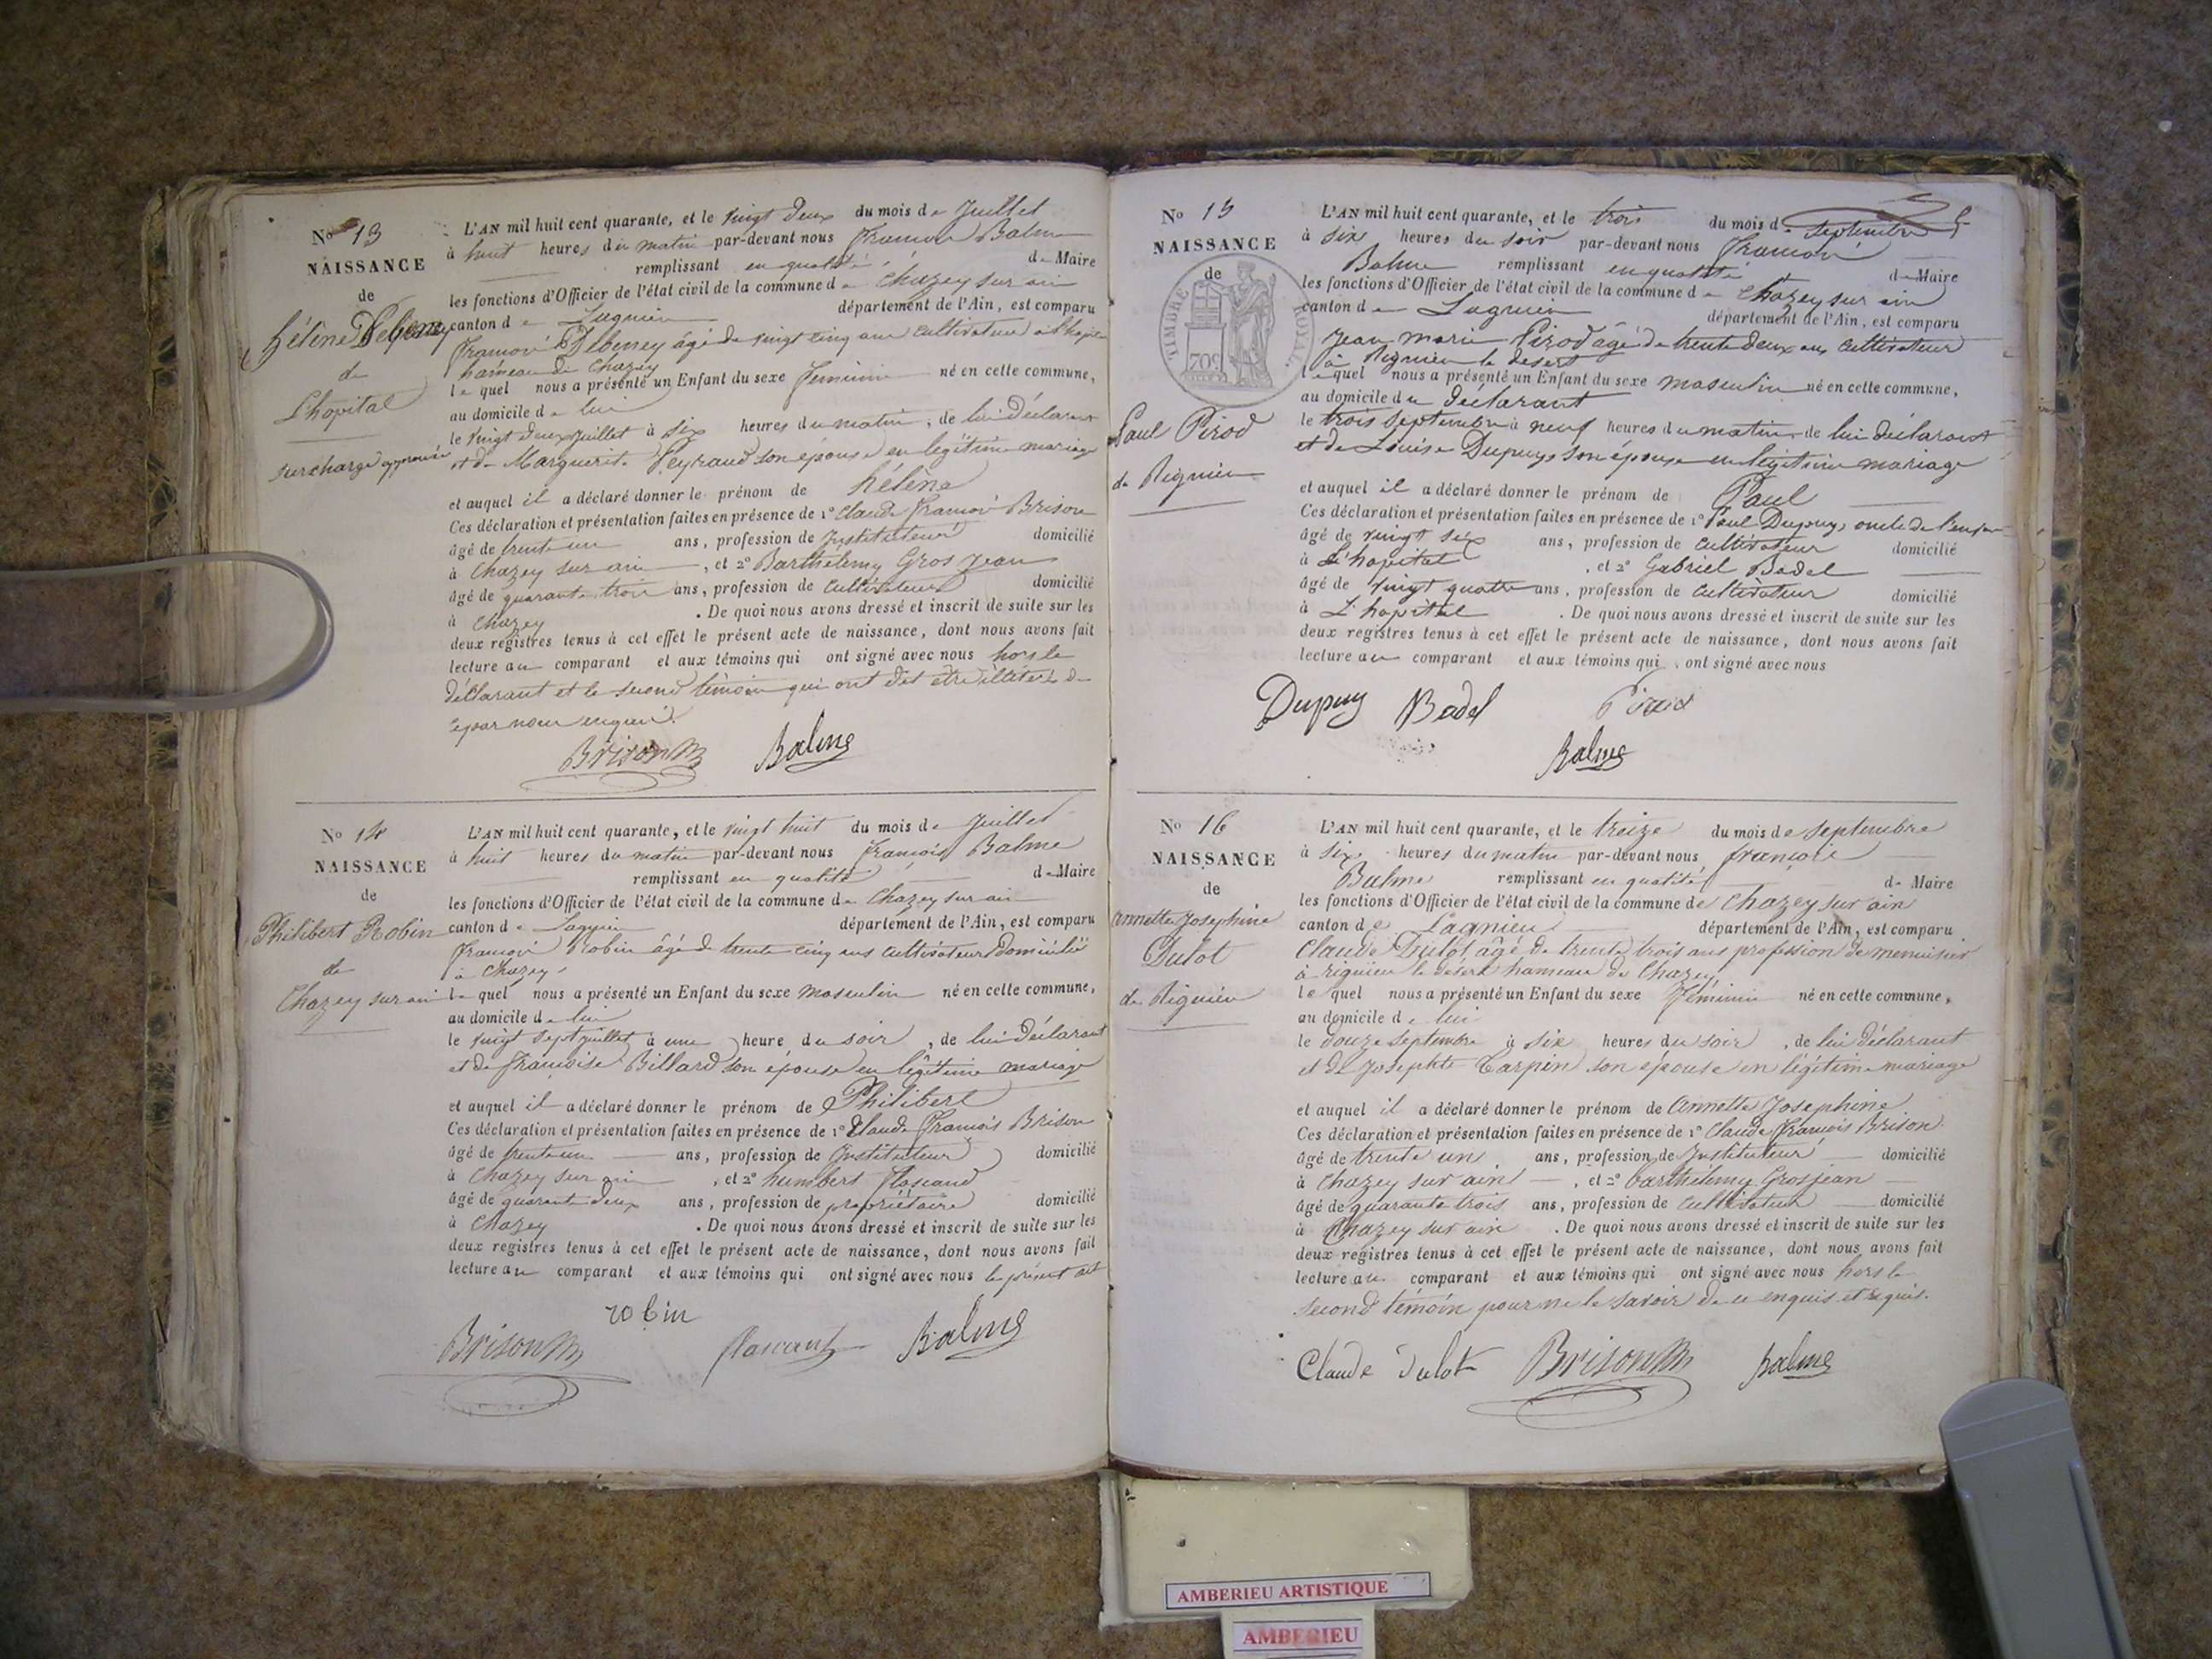 No 13
NAISSANCE
de
hélène Debeney
de
L'hopital
surcharge approuvée
L'AN mil huit cent quarante, et le vingt deux du mois de Juillet
à huit heures du matin par-devant nous François Balme
remplissant en qualité de Maire
les fonctions d'Officier de l'état civil de la commune de Chazey sur ain
canton de Lagnieu département de l'Ain, est comparu
François Debeney âgé de vingt cinq ans cultivateur à l'hopital
hameau de Chazey
lequel nous a présenté un Enfant du sexe feminin né en cette commune,
au domicile de lui
le vingt deux juillet à six heures du matin, de lui déclarant
et de Marguerite Peyraud son épouse en légitime mariage
et auquel il a déclaré donner le prénom de hélène
Ces déclaration et présentation faites en présence de 1° Claude François Brison
âgé de trente un ans, profession de Instituteur domicilié
à Chazey sur ain, et 2° Barthélemy Gros Jean
âgé de quarante trois ans, profession de Cultivateur domicilié
à Chazey. De quoi nous avons dressé et inscrit de suite sur les
deux registres tenus à cet effet le présent acte de naissance, dont nous avons fait
lecture au comparant et aux témoins qui ont signé avec nous hors le
déclarant et le second témoin qui ont dit être illétérés de
ce par nous enquis.
Brison Balme
No 14
NAISSANCE
de
Philibert Robin
de
Chazey sur ain
L'AN mil huit cent quarante, et le vingt huit du mois de Juillet
à huit heures du matin par-devant nous François Balme
remplissant en qualité de Maire
les fonctions d'Officier de l'état civil de la commune de Chazey sur ain
canton de Lagnieu département de l'Ain, est comparu
François Robin âgé de trente cinq ans cultivateur domicilié
à Chazey
lequel nous a présenté un Enfant du sexe masculin né en cette commune,
au domicile de lui
le vingt sept juillet à une heure du soir, de lui déclarant
et de françoise Billard son épouse en légitime mariage
et auquel il a déclaré donner le prénom de Philibert
Ces déclaration et présentation faites en présence de 1° Claude François Brison
âgé de trente un ans, profession de Instituteur domicilié
à Chazey sur ain, et 2° humbert
âgé de quarante deux ans, profession de propriétaire domicilié
à Chazey. De quoi nous avons dressé et inscrit de suite sur les
deux registres tenus à cet effet le présent acte de naissance, dont nous avons fait
lecture au comparant et aux témoins qui ont signé avec nous le présent act
robin
Brison Balme
No 15
NAISSANCE
de
TIMBRE ROYAL
70c
Paul Pirod
de Rignieu
L'AN mil huit cent quarante, et le trois du mois de Septembre
à six heures du soir par-devant nous François
Balme remplissant en qualité de Maire
les fonctions d'Officier de l'état civil de la commune de Chazey sur ain
canton de Lagnieu département de l'Ain, est comparu
Jean marie Pirod âgé de trente deux ans cultivateur
à Rignieu le desert
lequel nous a présenté un Enfant du sexe masculin né en cette commune,
au domicile du déclarant
le trois septembre à neuf heures du matin de lui déclarant
et de Louise Dupuy son épouse en légitime mariage
et auquel il a déclaré donner le prénom de Paul
Ces déclaration et présentation faites en présence de 1° Paul Dupuy, oncle de l'enfant
âgé de vingt six ans, profession de cultivateur domicilié
à L'hopital, et 2° Gabriel Badel
âgé de vingt quatre ans, profession de cultivateur domicilié
à L'hopital. De quoi nous avons dressé et inscrit de suite sur les
deux registres tenus à cet effet le présent acte de naissance, dont nous avons fait
lecture au comparant et aux témoins qui ont signé avec nous
Dupuy Badel Pirod
Balme
No 16
NAISSANCE
de
annette Josephine
Dulot
de Rignieu
L'AN mil huit cent quarante, et le treize du mois de Septembre
à six heures du matin par-devant nous françois
Balme remplissant en qualité de Maire
les fonctions d'Officier de l'état civil de la commune de Chazey sur ain
canton de Lagnieu département de l'Ain, est comparu
Claude Dulot âgé de trente trois ans profession de menuisier
à rignieu le desert hameau de Chazey
lequel nous a présenté un Enfant du sexe féminin né en cette commune,
au domicile de lui
le douze septembre à six heures du soir, de lui déclarant
et de Josephte Carpin son épouse en légitime mariage
et auquel il a déclaré donner le prénom de annette Josephine
Ces déclaration et présentation faites en présence de 1° Claude François Brison
âgé de trente un ans, profession de Instituteur domicilié
à Chazey sur ain, et 2° barthélemy Grosjean
âgé de quarante trois ans, profession de cultivateur domicilié
à Chazey sur ain. De quoi nous avons dressé et inscrit de suite sur les
deux registres tenus à cet effet le présent acte de naissance, dont nous avons fait
lecture au comparant et aux témoins qui ont signé avec nous hors le
second témoin pour ne le savoir de ce enquis et requis.
Claude Dulot Brison Balme
AMBERIEU ARTISTIQUE
AMBERIEU